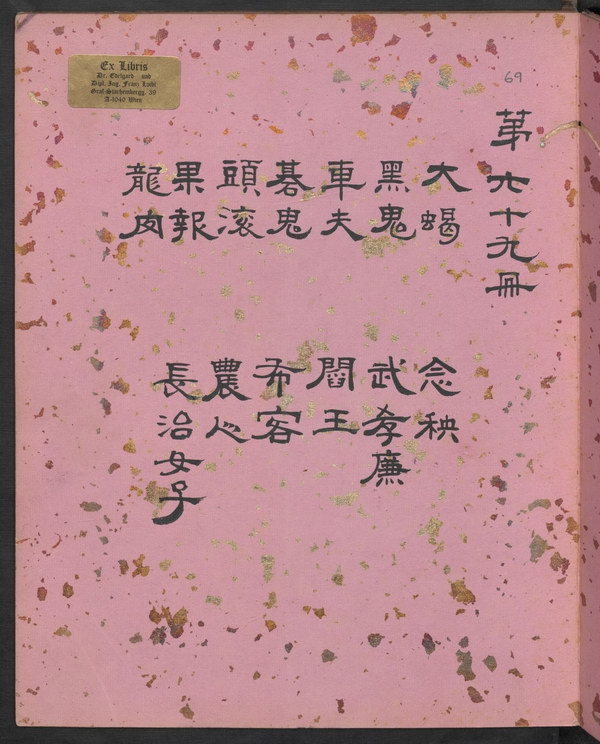 Ex Libris
Dr. Edelgard und
Dipl. Ing. Franz
Graf Starhembergg.
A-1040 Wien
69
第六十九冊
大蝎
黑鬼
車夫
碁鬼
頭滾
果報
龍肉
念秧
武孝廉
閻王
布客
農人
長治女子